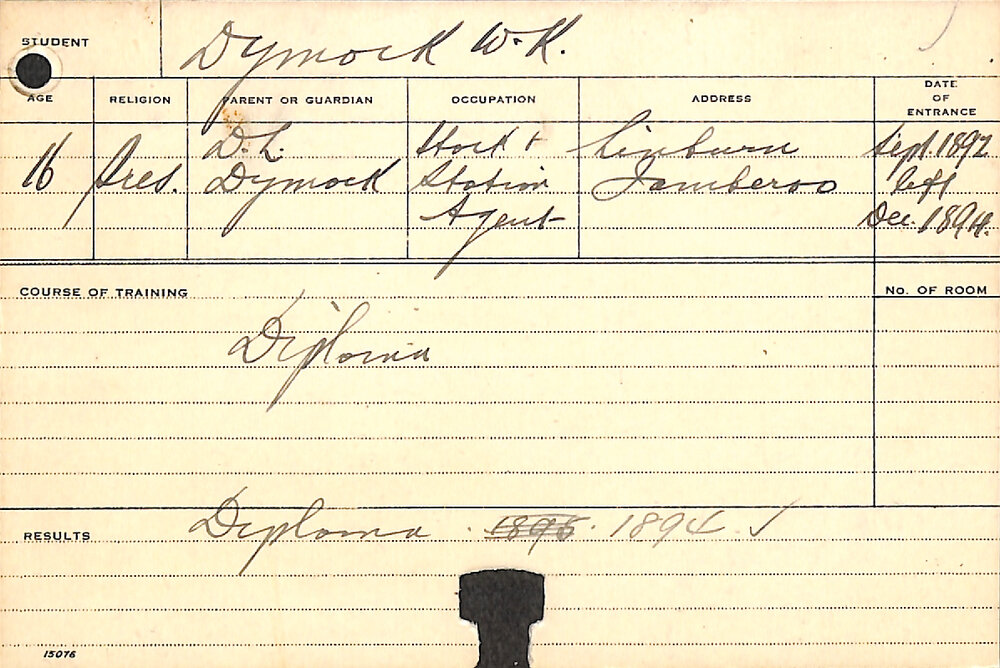 STUDENT Dymock W.K.
AGE RELIGION PARENT OR GUARDIAN OCCUPATION ADDRESS DATE OF ENTRANCE
16 Pres. D.L. Dymock Stock + Station Agent Linburn Jamberoo Sept. 1892 left Dec. 1894.
COURSE OF TRAINING No. OF ROOM
Diploma
RESULTS Diploma. 1895. 1894 ✓
15076